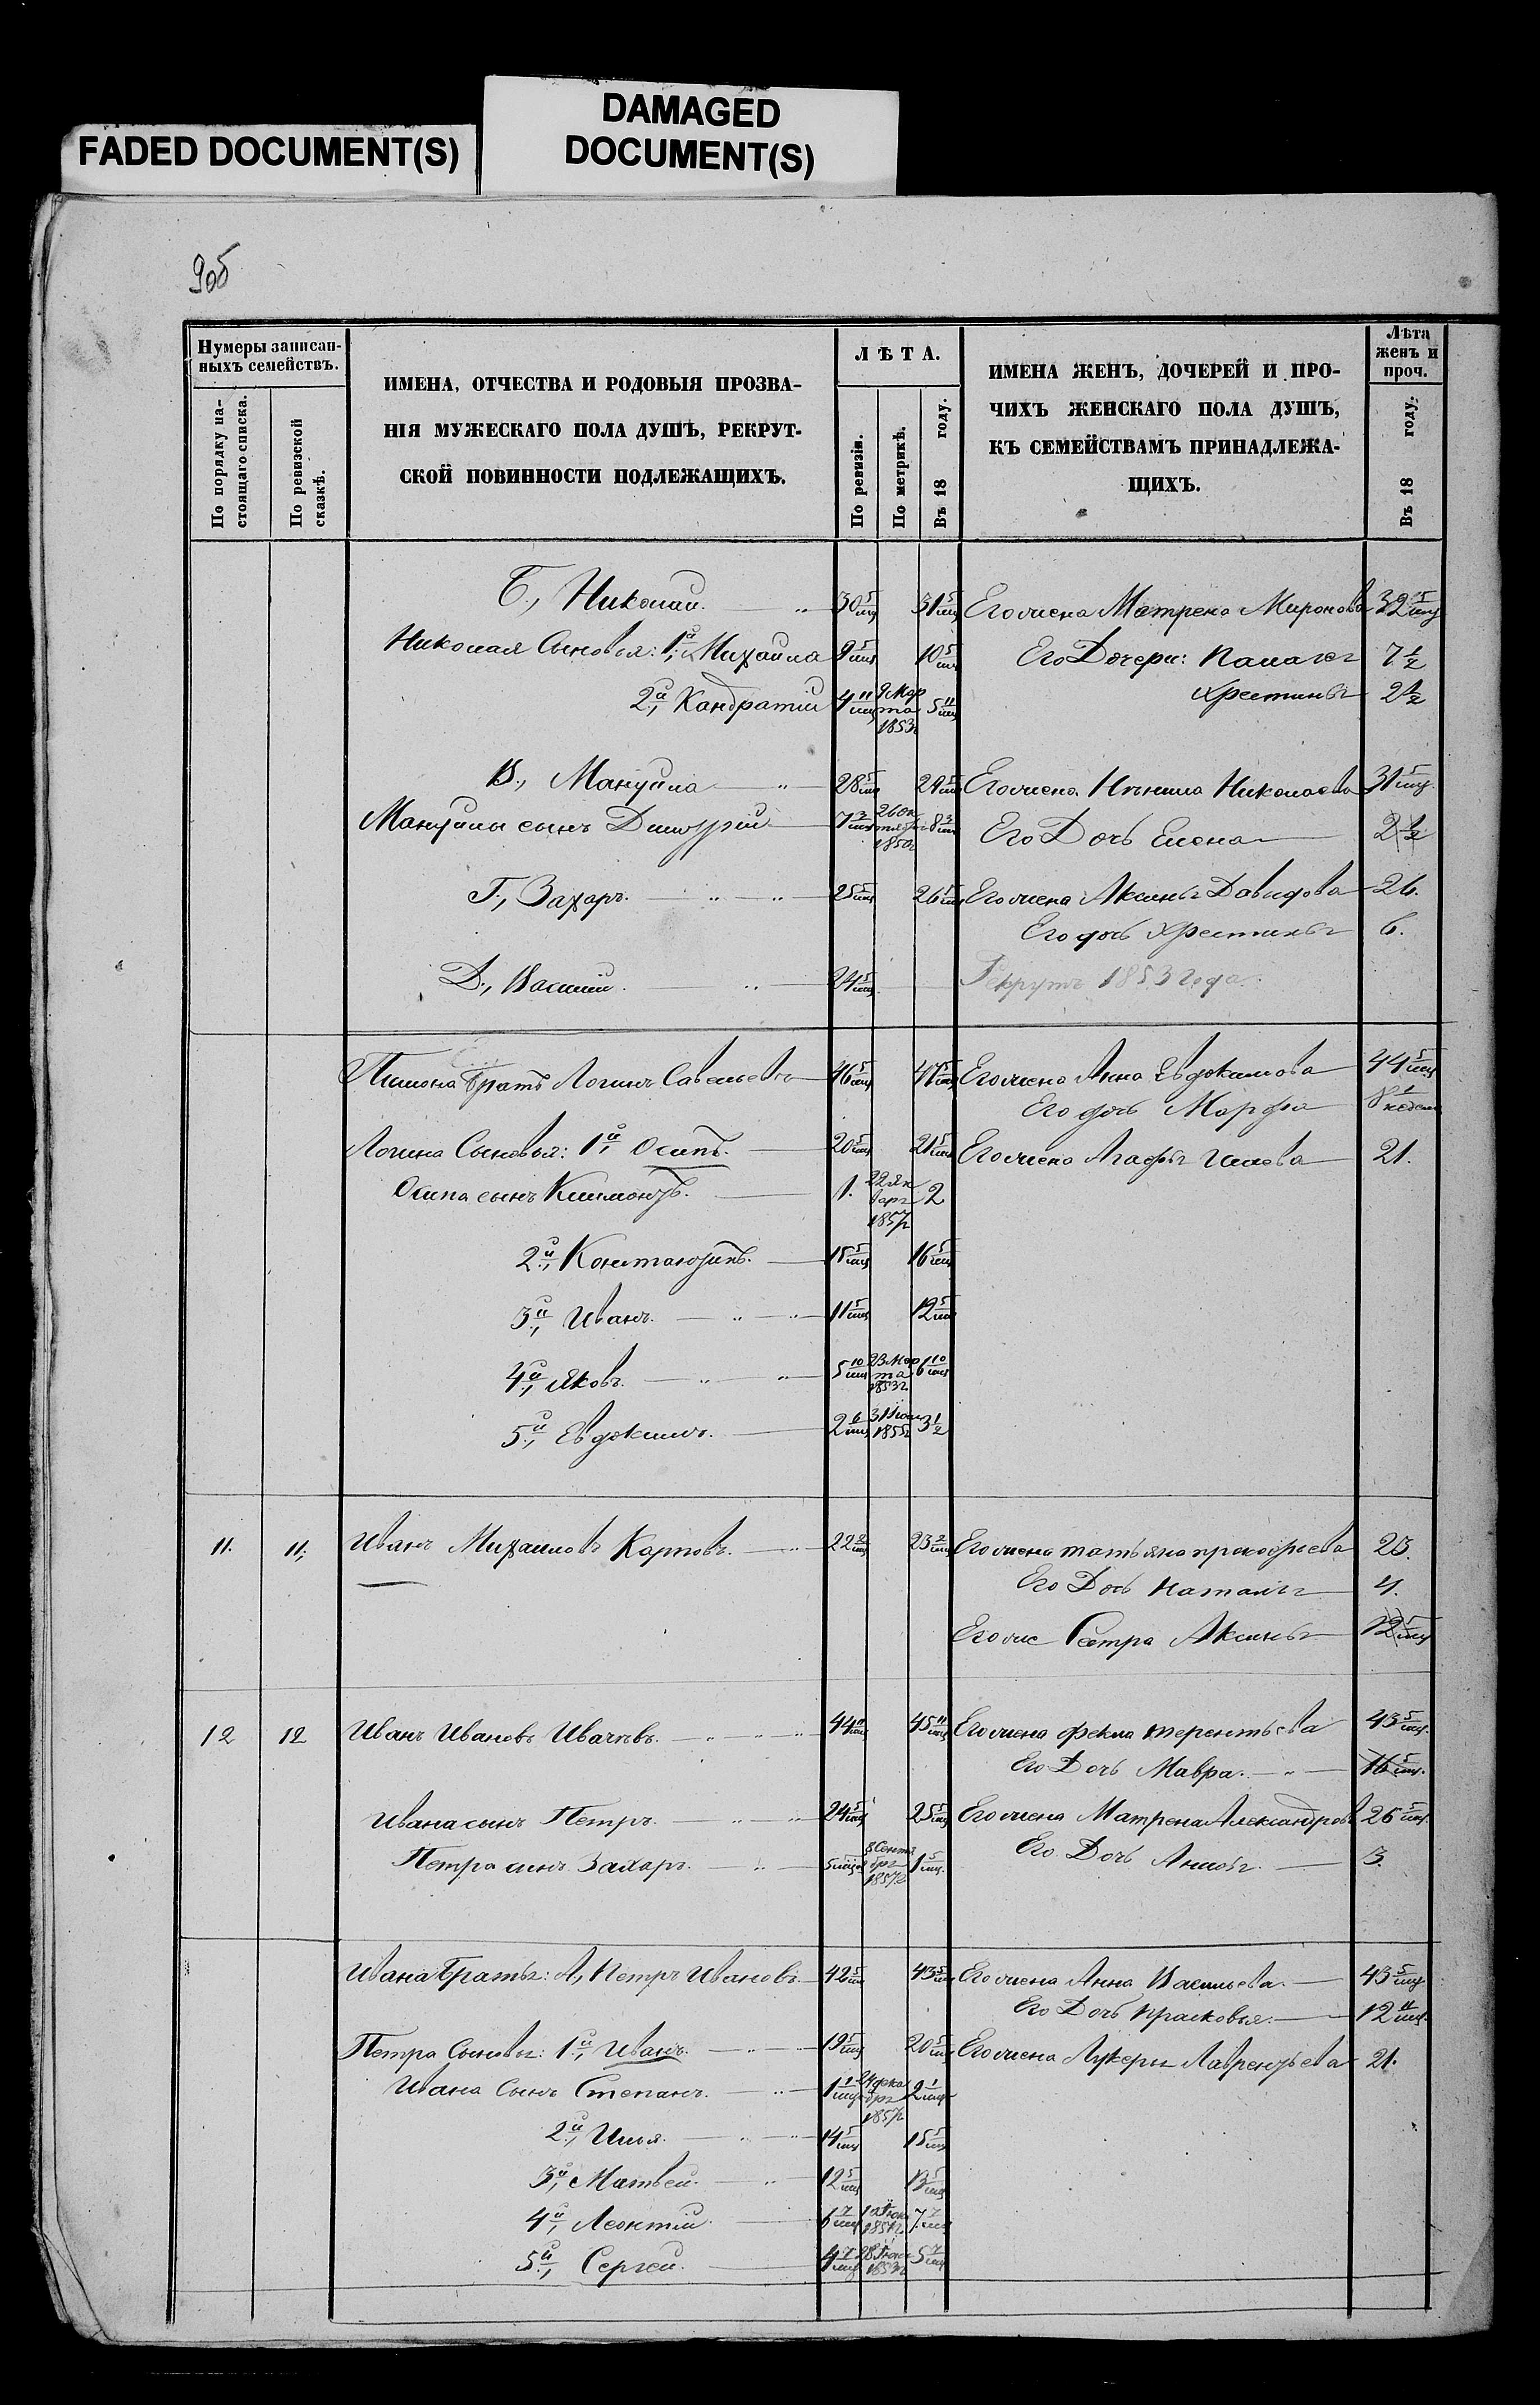 FADED DOCUMENT(S)
DAMAGED
DOCUMENT(S)
9об
Нумеры записан-
ныхъ семействъ.
По порядку на-
стоящаго списка.
По ревизской
сказкѣ.
ИМЕНА, ОТЧЕСТВА И РОДОВЫЯ ПРОЗВА-
НІЯ МУЖЕСКАГО ПОЛА ДУШЪ, РЕКРУТ-
СКОЙ ПОВИННОСТИ ПОДЛЕЖАЩИХЪ.
ЛѢТА.
По ревизіи.
По метрикѣ.
Въ 18 году.
ИМЕНА ЖЕНЪ, ДОЧЕРЕЙ И ПРО-
ЧИХЪ ЖЕНСКАГО ПОЛА ДУШЪ,
КЪ СЕМЕЙСТВАМЪ ПРИНАДЛЕЖА-
ЩИХЪ.
Лѣта
женъ и
проч.
Въ 18 году.
Б., Николаи. 30 5/мц 31 5/мц Его жена Матрена Миронова 32 5/мц
Николая Сыновья: 1й, Михаила 9 5/мц 10 5/мц Его Дочери: Палагея 7 1/2
2й, Кандратій 4 11/мц 9 Мар та 1853г 5 11/мц Хрестинья 2 1/2
В., Мануила 28 5/мц 29 5/мц Его жена Николаева 31 5/мц.
Мануилы сынъ Димитрій 7 3/мц 26 Ок тября 1850г 8 3/мц Его Дочь Елена 2 1/2
Г., Захаръ. 25 5/мц 26 5/мц Его жена Аксинья Давидова 26.
Его дочь Хрестинья 6.
Д., Василіи. 24 5/мц. Рекрутъ 1853 года.
Пимона Братъ Логинъ Савельевъ 46 5/мц 47 5/мц Его жена Анна Евдокимова 44 5/мц
Его дочь Марфа 8 недель
Логина Сыновья: 1й, Осипъ. 20 5/мц 21 5/мц Его жена Агафья 21.
Осипа сынъ Климонтъ. 1. 22 Ян варя 1857г 2
2й, Констант��нъ. 15 5/мц 16 5/мц
3й, Иванъ. 11 5/мц 12 5/мц
4й, Яковъ. 5 10/мц 23 Мар та 1853г. 6 10/мц
5й, Евдокимъ. 2 6/мц 31 Июл 1855г 3 1/2
11. 11; Иванъ Михаиловъ Карповъ. 22 2/мц 23 2/мц Его жена татьяна прокофьева 23.
Его Дочь Наталья 4.
Его же Сестра Аксинья 12 5/мц
12 12 Иванъ Ивановъ Ивачевъ. 44 11/мц 45 11/мц Его жена фекла терентьева 43 5/мц.
Его Дочь Мавра. 16 5/мц.
Ивана сынъ Петръ. 24 5/мц 25 5/мц Его жена Матрена Александрова 26 5/мц.
Петра сынъ Захаръ. 5 мцов 8 Сентя бря 1857г. 1 5/мц. Его Дочь 3.
Ивана Братья: А, Петръ Ивановъ. 42 5/мц 43 5/мц Его жена Анна Васильева. 43 5/мц
Его Дочь прасковья. 12 11/мц.
Петра Сыновья: 1й, Иванъ. 19 5/мц 20 5/мц Его жена Лукерья Лаврентьева 21.
Ивана Сынъ Степанъ. 1 1/мц 24 дека бря 1857г 2 1/мц
2й, Илья. 14 5/мц 15 5/мц
3й, Матвеи. 12 5/мц 13 5/мц
4й, Леонтіи. 6 7/мц 1851г. 7 7/мц
5й, Сергеи. 4 7/мц 28 Июня 1853г 5 7/мц